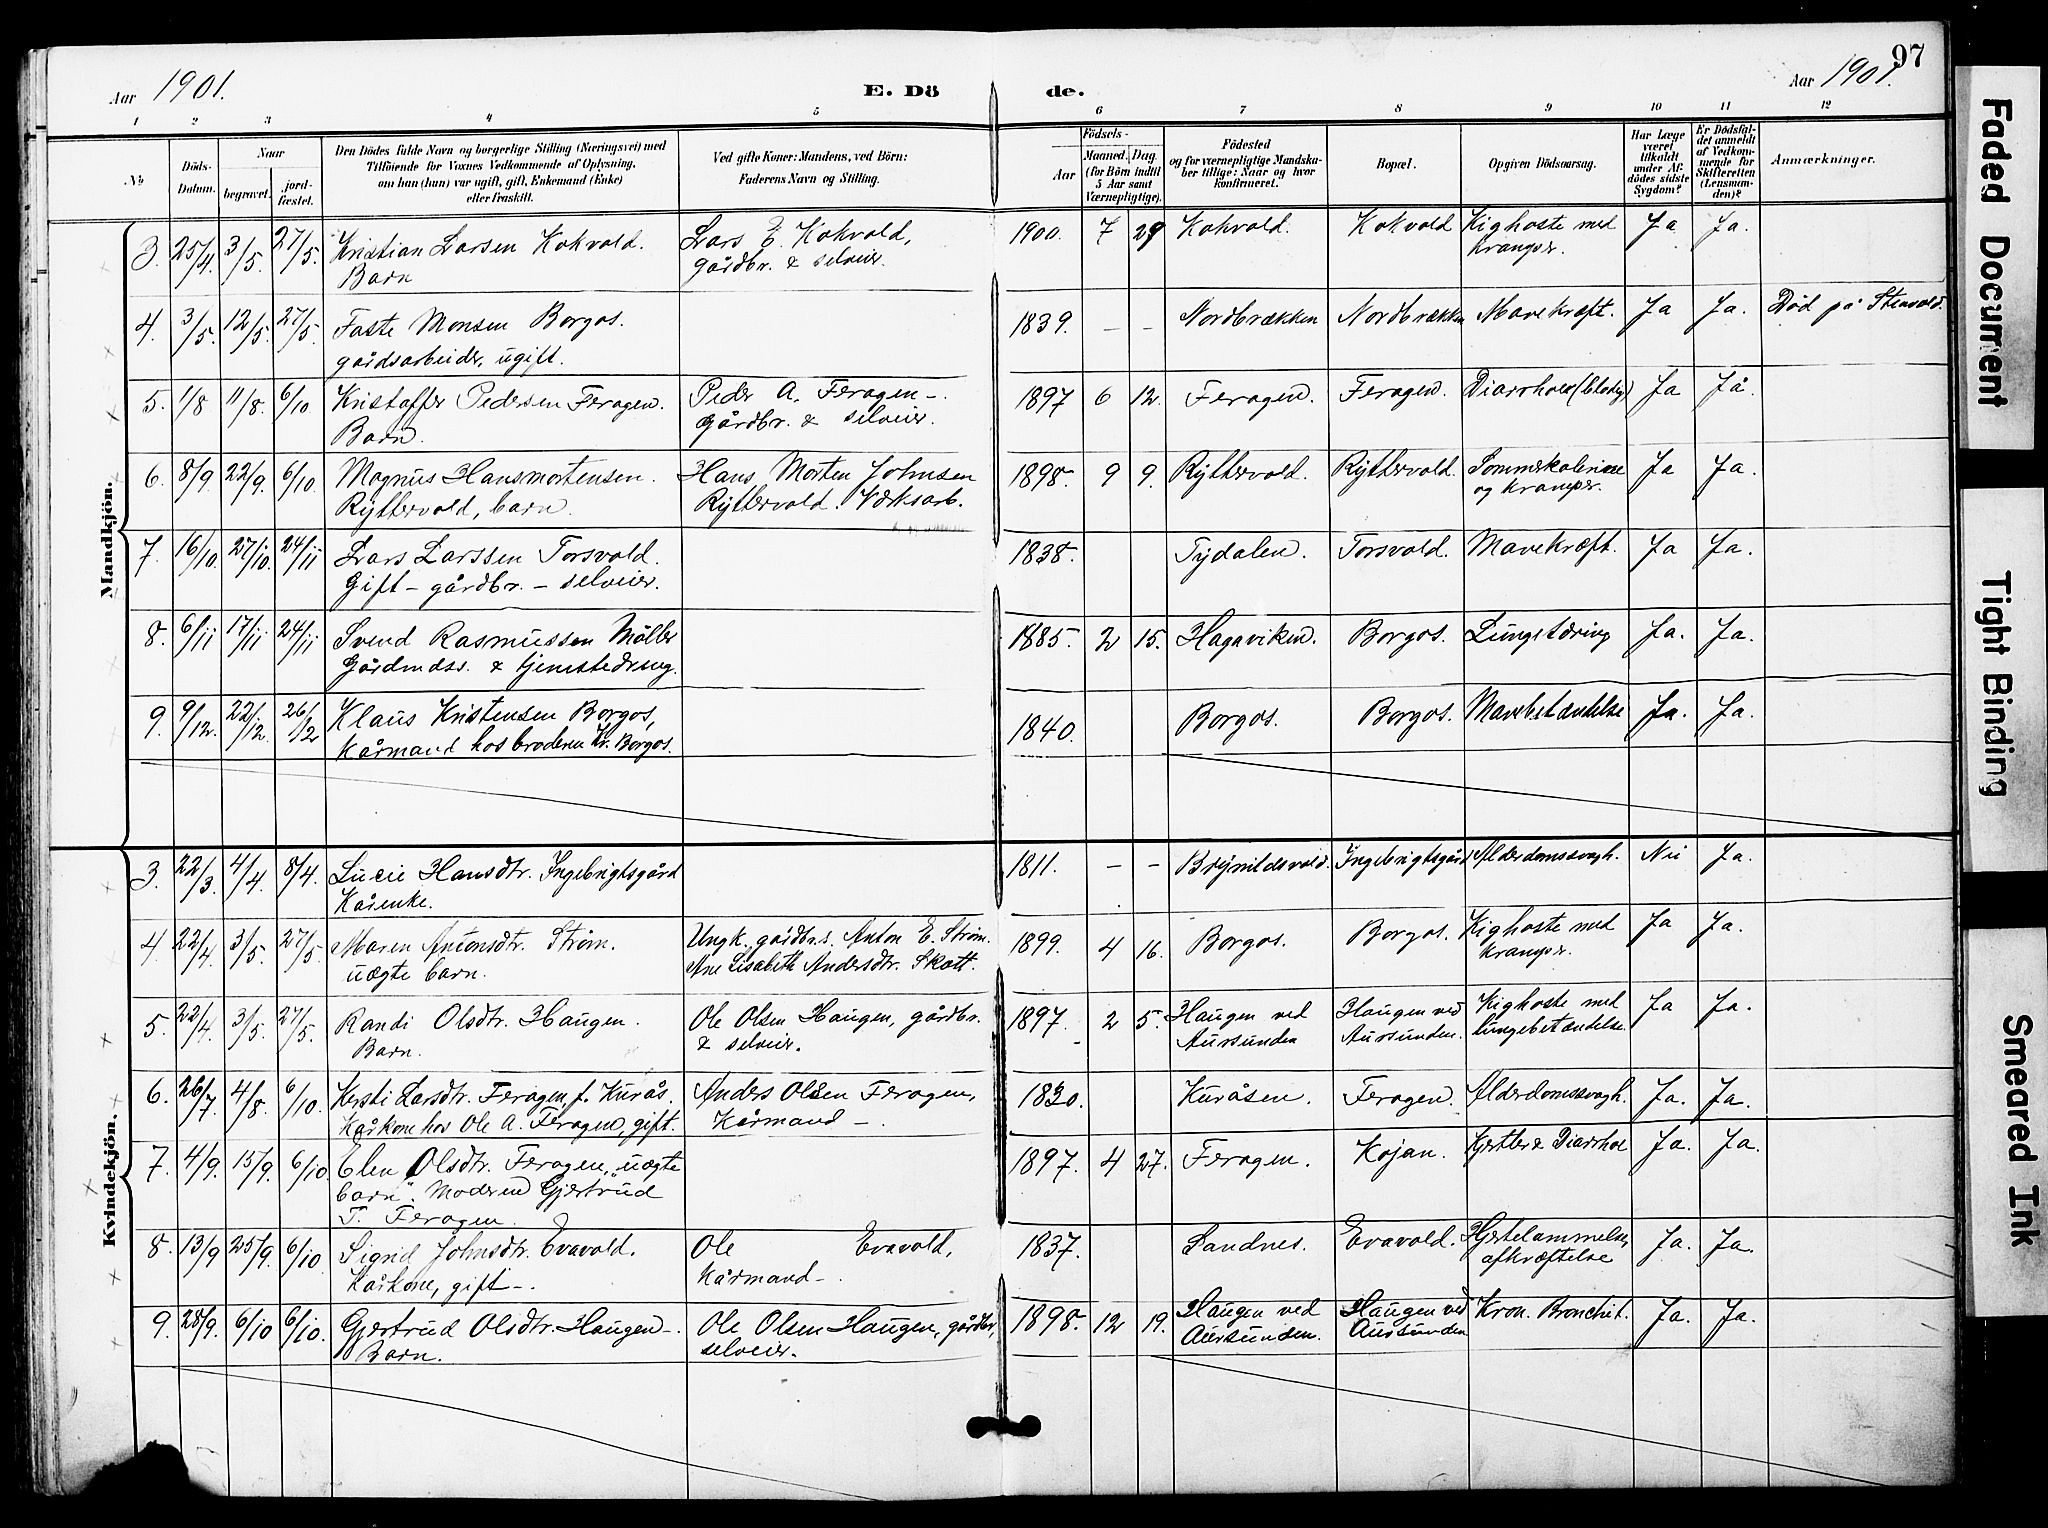 97
Aar 1901.
E. Dö de.
Aar 1901.
1 2 3 4 5 6 7 8 9 10 11 12
No
Döds-Datum.
Naar
begravet.
jord-fæstet.
Den Dödes fulde Navn og borgerlige Stilling (Næringsvei) med
Tilföiende for Voxnes Vedkommende af Oplysning,
om han (hun) var ugift, gift, Enkemand (Enke)
eller fraskilt.
Ved gifte Koner: Mandens, ved Börn:
Faderens Navn og Stilling.
Födsels-
Aar
Maaned. Dag.
(for Börn indtil
5 Aar samt
Værnepligtige).
Födested
og for værnepligtige Mandska-
ber tillige: Naar og hvor
konfirmeret.
Bopæl.
Opgiven Dödsaarsag.
Har Læge
været
tilkaldt
under Af-
dödes sidste
Sygdom?
Er Dödsfal-
det anmeldt
af Vedkom-
mende for
Skifteretten
(Lensman-
den)?
Anmærkninger.
Mandkjön.
3. 25/4 3/5. 27/5. Kristian Larsen Kokvold. Lars E. Kokvold, 1900. 7 29 Kokvold. Kokvold Kighoste med Ja Ja.
Barn gårdbr. & selveier. kramper.
4. 3/5. 12/5. 27/5. Faste Monsen Borgos. 1839. – – Nordbrækken Nordbrækken Mavekræft. Ja Ja. Död på Stenvold.
gårdsarbeider, ugift.
5. 1/8 11/8. 6/10. Kristoffer Pedersen Feragen. Peder A. Feragen –. 1897 6 12. Feragen. Feragen. Diarrhoea (blodig) Ja Ja.
Barn. Gårdbr. & selveier.
6. 8/9. 22/9. 6/10. Magnus Hansmortensen. Hans Morten Johnsen 1898. 9 9. Ryttervold. Ryttervold. Sommerkolerine Ja Ja.
Ryttervold, barn. Ryttervold. Værksarb. og kramper.
7. 16/10. 27/10. 24/11 Lars Larssen Torsvold. 1838. Tydalen. Torsvold. Mavekræft. Ja Ja.
Gift – gårdbr. – selveier.
8. 6/11 17/11 24/11 Svend Rasmussen Möller 1885. 2 15. Hagaviken. Borgos. Lungetæring Ja. Ja.
9. 9/12. 22/12. 26/12 Klaus Kristensen Borgos, 1840. Borgos. Borgos. Mavebetændelse Ja. Ja.
Kårmand hos broderen Kr. Borgos.
Kvindekjön.
3. 22/3. 4/4. 8/4. Lucie Hansdtr. Ingebrigtsgård 1811. – – Brynildsvold. Ingebrigtsgård Alderdomssvagh. Nei Ja.
Kårenke.
4. 22/4. 3/5. 27/5. Maren Antonsdtr. Ström. Ungk. gårdbr.s. Anton E. Ström. 1899. 4 16. Borgos. Borgos. Kighoste med Ja Ja.
uægte barn. Ane Lisabeth Andersdtr. Skott. kramper.
5. 22/4. 3/5. 27/5. Randi Olsdtr. Haugen. Ole Olsen Haugen, gårdbr. 1897. 2 5. Haugen ved Haugen ved Kighoste med Ja Ja.
Barn. & selveier. Aursunden Aursunden. lungebetændelse.
6. 26/7. 4/8. 6/10. Kersti Larsdtr. Feragen, f. Kurås. Anders Olsen Feragen, 1820. Kuråsen. Feragen. Alderdomssvagh. Ja. Ja.
Kårkone hos Ole A. Feragen, gift. Kårmand –.
7. 4/9. 15/9. 6/10. Elen Olsdtr. Feragen, "uægte 1897. 4 27. Feragen. Kojan. Kjertler & Diarrhoe Ja. Ja.
barn". Moderen Gjertrud
T. Feragen.
8. 13/9 25/9. 6/10 Sigrid Johnsdtr. Evavold. Ole Evavold, 1837. Sandnes. Evavold. Hjertelammelse, Ja. Ja.
Kårkone, gift –. Kårmand –. afkræftelse
9. 28/9. 6/10 6/10. Gjertrud Olsdtr. Haugen –. Ole Olsen Haugen, gårdbr, 1898. 12 19. Haugen ved Haugen ved Kron. Bronchit. Ja. Ja.
Barn. selveier. Aursunden. Aursunden
Faded Document
Tight Binding
Smeared Ink